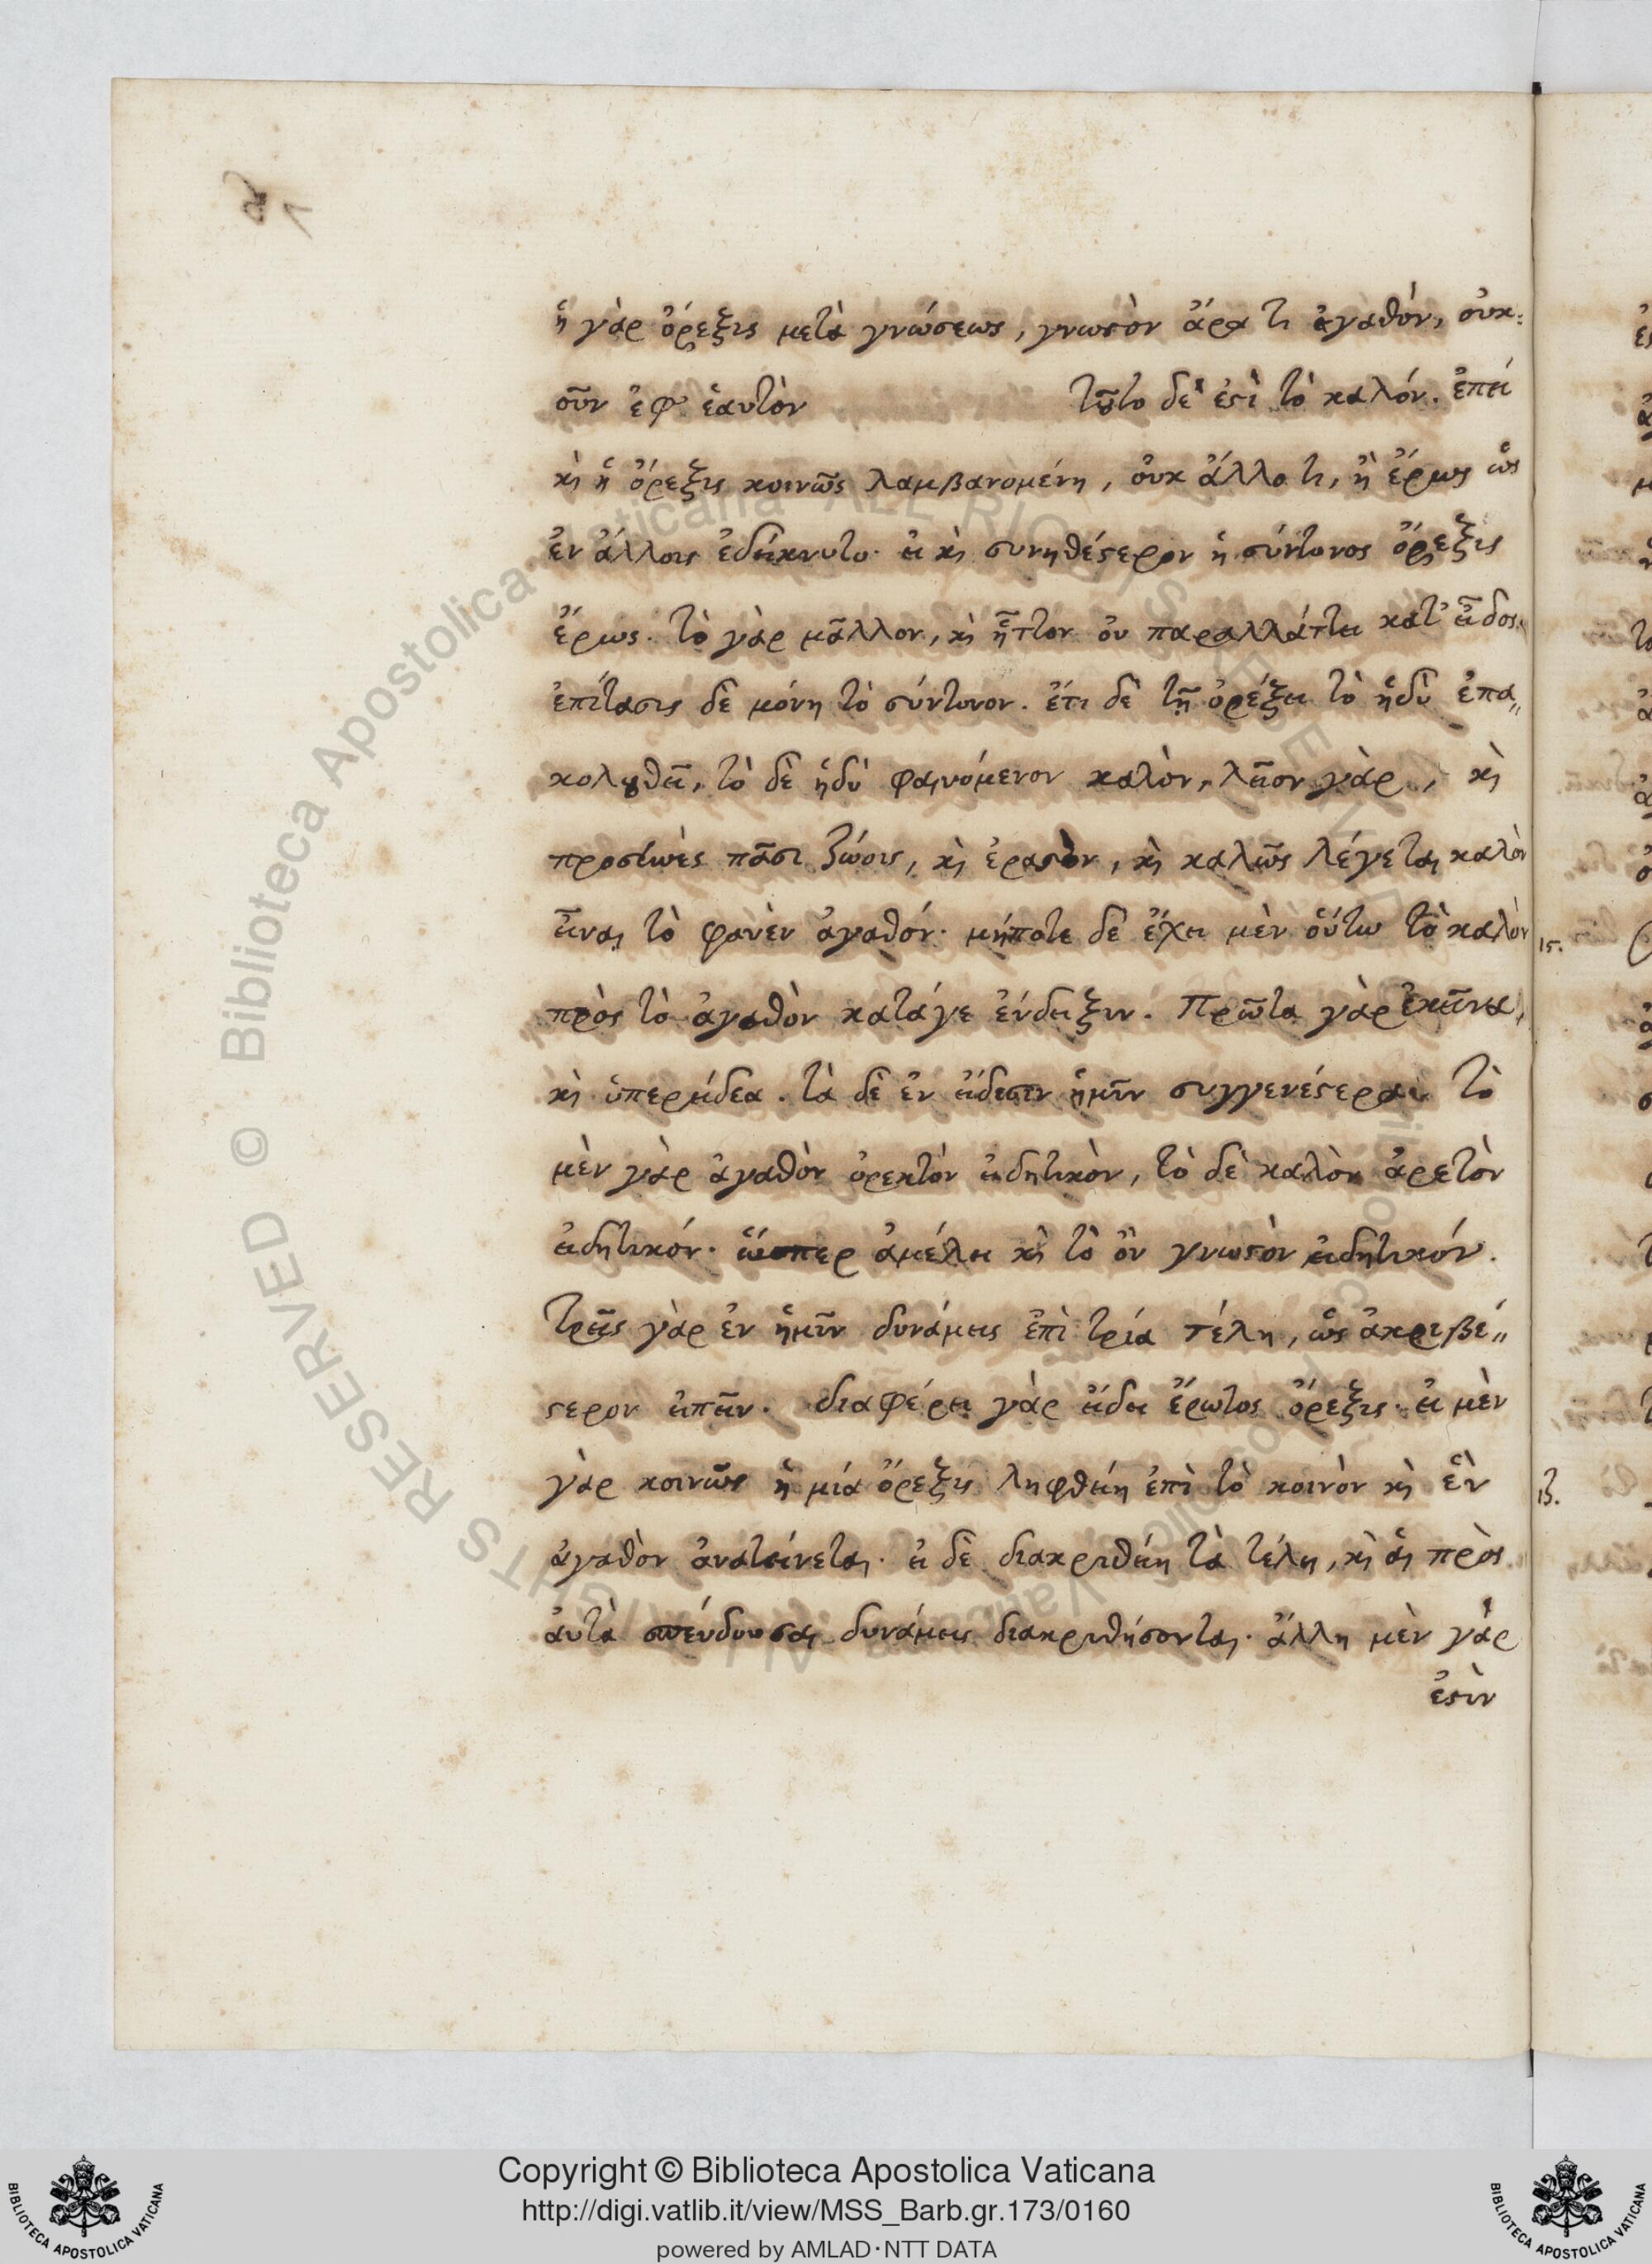 ἡ γὰρ ὄρεξις μετὰ γνώσεως, γνωστὸν ἄρα τὶ ἀγαθόν, οὐκ-
οῦν ἐφ' ἑαυτὸν τοῦτο δέ ἐστὶ τὸ καλόν. ἐπεί
καὶ ἡ ὄρεξις κοινῶς λαμβανομένη, οὐκ ἄλλο τι, ἢ ἔρως ὡς
ἐν ἄλλοις ἐδείκνυτο· εἰ καὶ συνηθέστερον ἡ σύντονος ὄρεξις
ἔρως. τὸ γὰρ μᾶλλον, καὶ ἧττον οὐ παραλλάττει κατ' εἶδος.
ἐπίτασις δὲ μόνη τὸ σύντονον. ἔτι δὲ τῇ ὀρέξει τὸ ἡδὺ ἐπα-
κολουθεῖ, τὸ δὲ ἡδὺ φαινόμενον καλὸν, λεῖον γὰρ, καὶ
προσηνὲς πᾶσι ζώοις, καὶ ἐραστὸν, καὶ καλῶς λέγεται καλὸν
εἶναι τὸ φανὲν ἀγαθόν· μήποτε δὲ ἔχει μὲν οὕτω τὸ καλὸν
πρὸς τὸ ἀγαθὸν κατάγε ἔνδειξιν. Πρῶτα γὰρ ἐκεῖνα,
καὶ ὑπερείδεα. τὰ δὲ ἐν εἴδεσιν ἡμῖν συγγενέστερα. τὸ
μὲν γὰρ ἀγαθὸν ὀρεκτὸν εἰδητικὸν, τὸ δὲ καλὸν ἀρετὸν
εἰδητικόν· ὥσπερ ἀμέλει καὶ τὸ ὂν γνωστὸν εἰδητικόν.
τρεῖς γὰρ ἐν ἡμῖν δυνάμεις ἐπὶ τρία τέλη, ὡς ἀκριβέ-
στερον εἰπεῖν. διαφέρει γὰρ εἴδει ἔρωτος ὄρεξις· εἰ μὲν
γὰρ κοινῶς ἡ μία ὄρεξις ληφθείη ἐπὶ τὸ κοινὸν καὶ ἓν
ἀγαθὸν ἀνατείνεται· εἰ δὲ διακριθείη τὰ τέλη, καὶ αἱ πρὸς
αὐτὰ σπεύδουσαι δυνάμεις διακριθήσονται· ἄλλη μὲν γάρ
ἐστὶν
15.
Copyright © Biblioteca Apostolica Vaticana
http://digi.vatlib.it/view/MSS_Barb.gr.173/0160
powered by AMLAD·NTT DATA
BIBLIOTECA APOSTOLICA VATICANA
BIBLIOTECA APOSTOLICA VATICANA